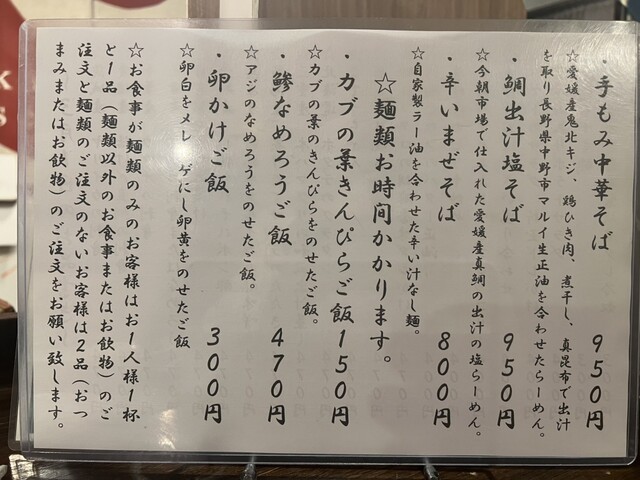 ・手もみ中華そば 950円
☆愛媛産鬼北キジ、鶏ひき肉、煮干し、真昆布で出汁
を取り長野県中野市マルイ生正油を合わせたらーめん。
・鯛出汁塩そば 950円
☆今朝市場で仕入れた愛媛産真鯛の出汁の塩らーめん。
・辛いまぜそば 800円
☆自家製ラー油を合わせた辛い汁なし麺。
☆麺類お時間かかります。
・カブの葉きんぴらご飯150円
☆カブの葉のきんぴらをのせたご飯。
・鯵なめろうご飯 470円
☆アジのなめろうをのせたご飯。
・卵かけご飯 300円
☆卵白をメレンゲにし卵黄をのせたご飯
☆お食事が麺類のみのお客様はお1人様1杯
と1品(麺類以外のお食事またはお飲物)のご
注文と麺類のご注文のないお客様は2品(おつ
まみまたはお飲物)のご注文をお願い致します。